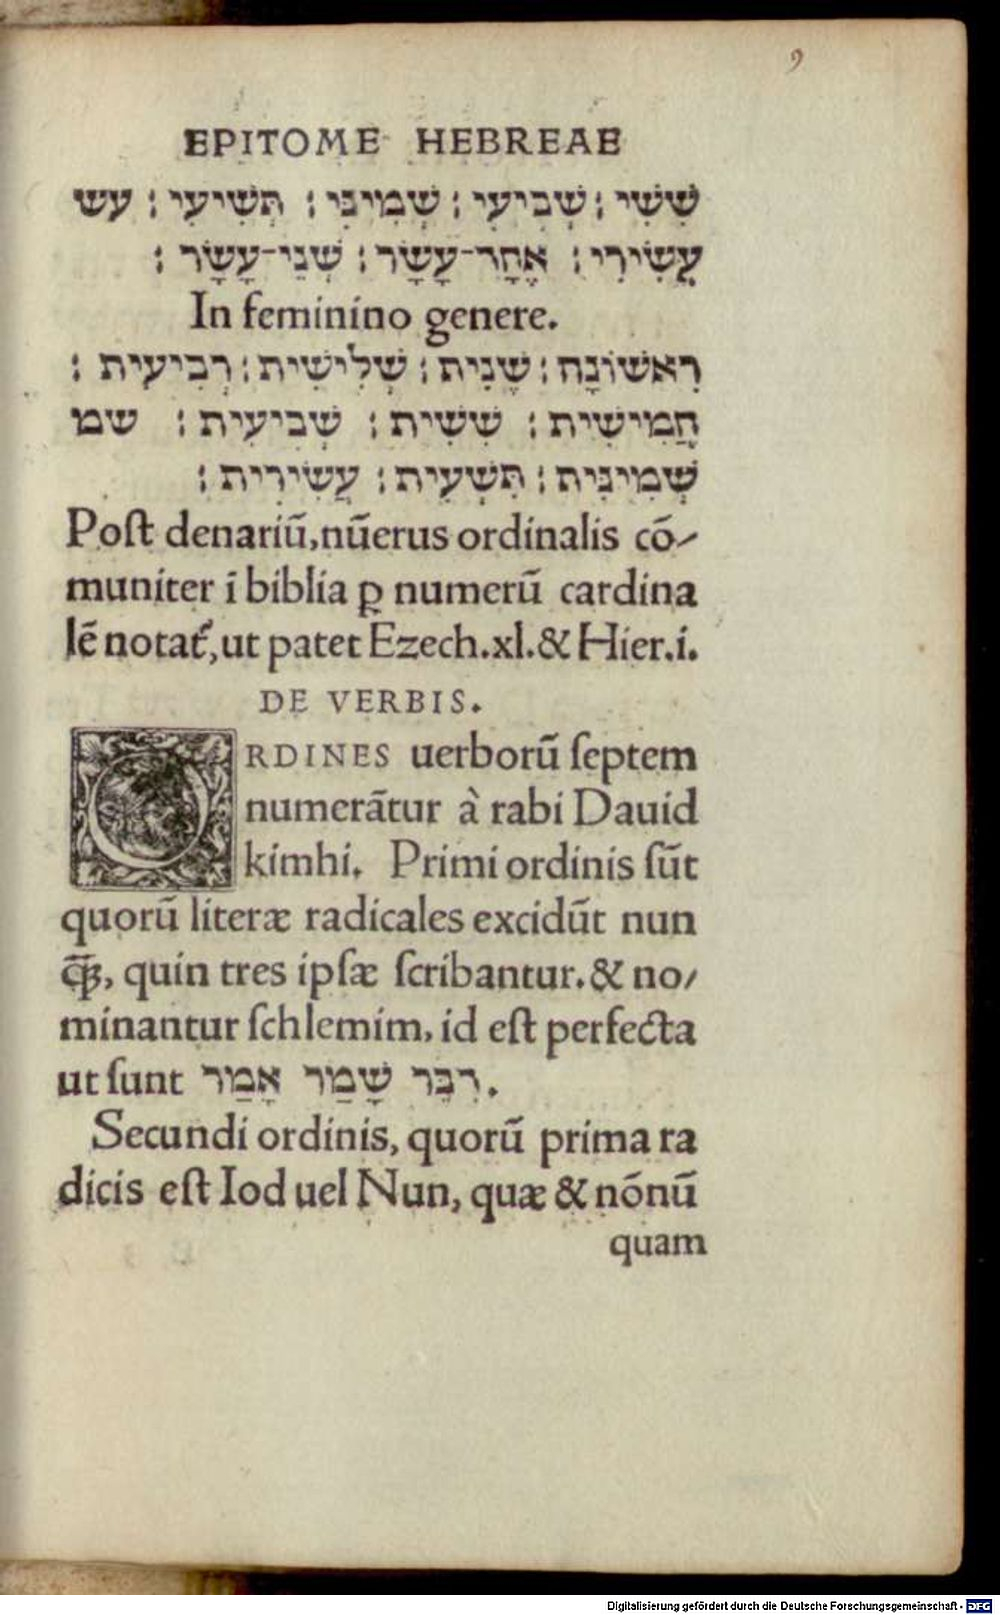 9
EPITOME HEBREAE
שִׁשִּׁי ׃ שְׁבִיעִי ׃ שְׁמִינִי ׃ תְּשִׁיעִי ׃ עש
עֲשִׂירִי ׃ אֶחָד־עָשָׂר ׃ שְׁנֵי־עָשָׂר ׃
In feminino genere.
רִאשׁוֹנָה ׃ שֵׁנִית ׃ שְׁלִישִׁית ׃ רְבִיעִית ׃
חֲמִישִׁית ׃ שִׁשִּׁית ׃ שְׁבִיעִית ׃ שמ
שְׁמִינִית ׃ תִּשְׁעִית ׃ עֲשִׂירִית ׃
Poſt denariū, nūerus ordinalis cō-
muniter ī biblia ꝑ numerū cardina
lē notat᷑, ut patet Ezech.xl.& Hier.i.
DE VERBIS.
ORDINES uerborū ſeptem
numerātur à rabi Dauid
kimhi. Primi ordinis ſūt
quorū literæ radicales excidūt nun
ꝗ̄ꝫ, quin tres ipſæ ſcribantur. & no/
minantur ſchlemim, id eſt perfecta
ut ſunt דִבֵּר שָׁמַר אָמַר.
Secundi ordinis, quorū prima ra
dicis eſt Iod uel Nun, quæ & nōnū
quam
Digitalisierung gefördert durch die Deutsche Forschungsgemeinschaft - DFG